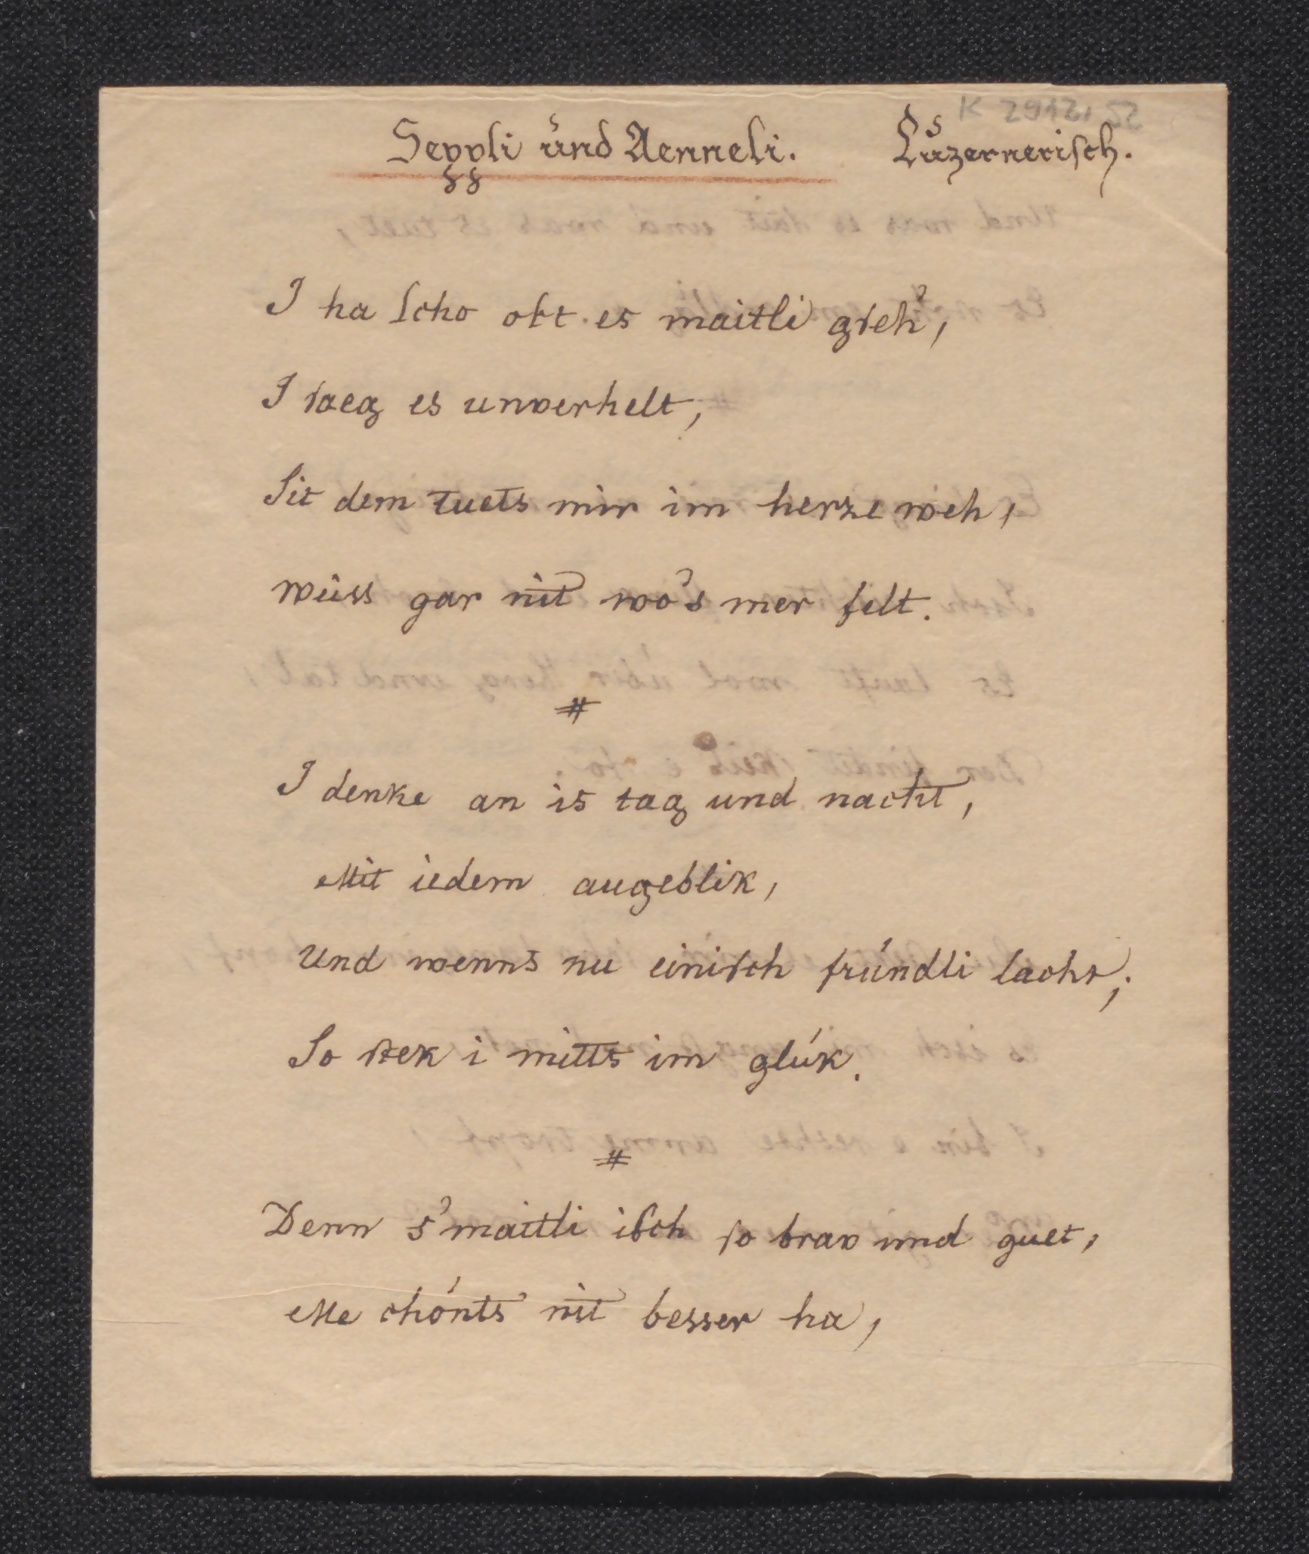 K 2912, 52
Seppli und Aenneli. Luzernerisch.
I ha scho oft es maitli gseh',
I saeg es unverhelt,
Sit dem tuets mir im herze weh,
weiss gar nit wo's mer felt.
#
I denke an is tag und nacht,
Mit iedem augeblik,
Und wenns nu einisch fründli lacht,
So stek i mitts im glük.
#
Denn s'maitli isch so brav und guet,
Me chönts nit besser ha,